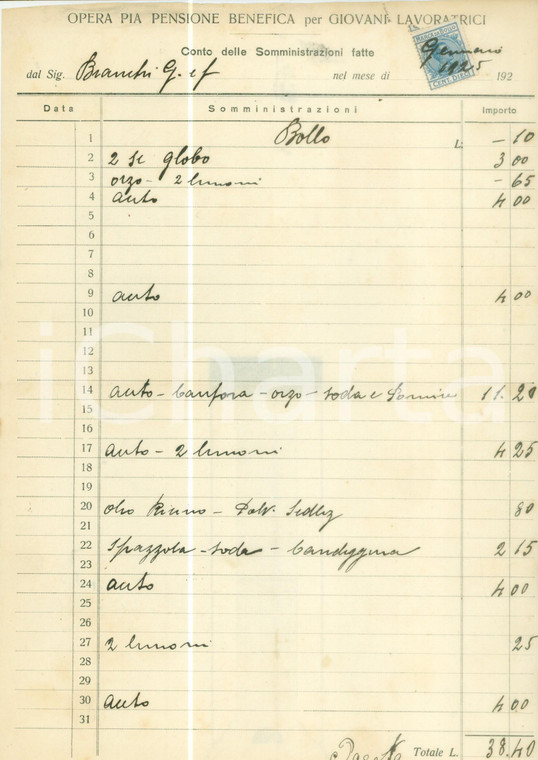 OPERA PIA PENSIONE BENEFICA per GIOVANI LAVORATRICI
Conto delle Somministrazioni fatte
dal Sig. Bianchi G. e f nel mese di Gennaio 1925 192
Data Somministrazioni Importo
1 Bollo L. — 10
2 2 globo 3 00
3 orzo - 2 limoni — 65
4 auto 4 00
5
6
7
8
9 auto 4 00
10
11
12
13
14 auto - Canfora - orzo - soda e 11. 20
15
16
17 auto - 2 limoni 4 25
18
19
20 olio Ricino - Polv. Sedlez 80
21
22 Spazzola - soda - Candeggina 2 15
23
24 auto 4 00
25
26
27 2 limoni 25
28
29
30 auto 4 00
31
Totale L. 38.40
iCharta